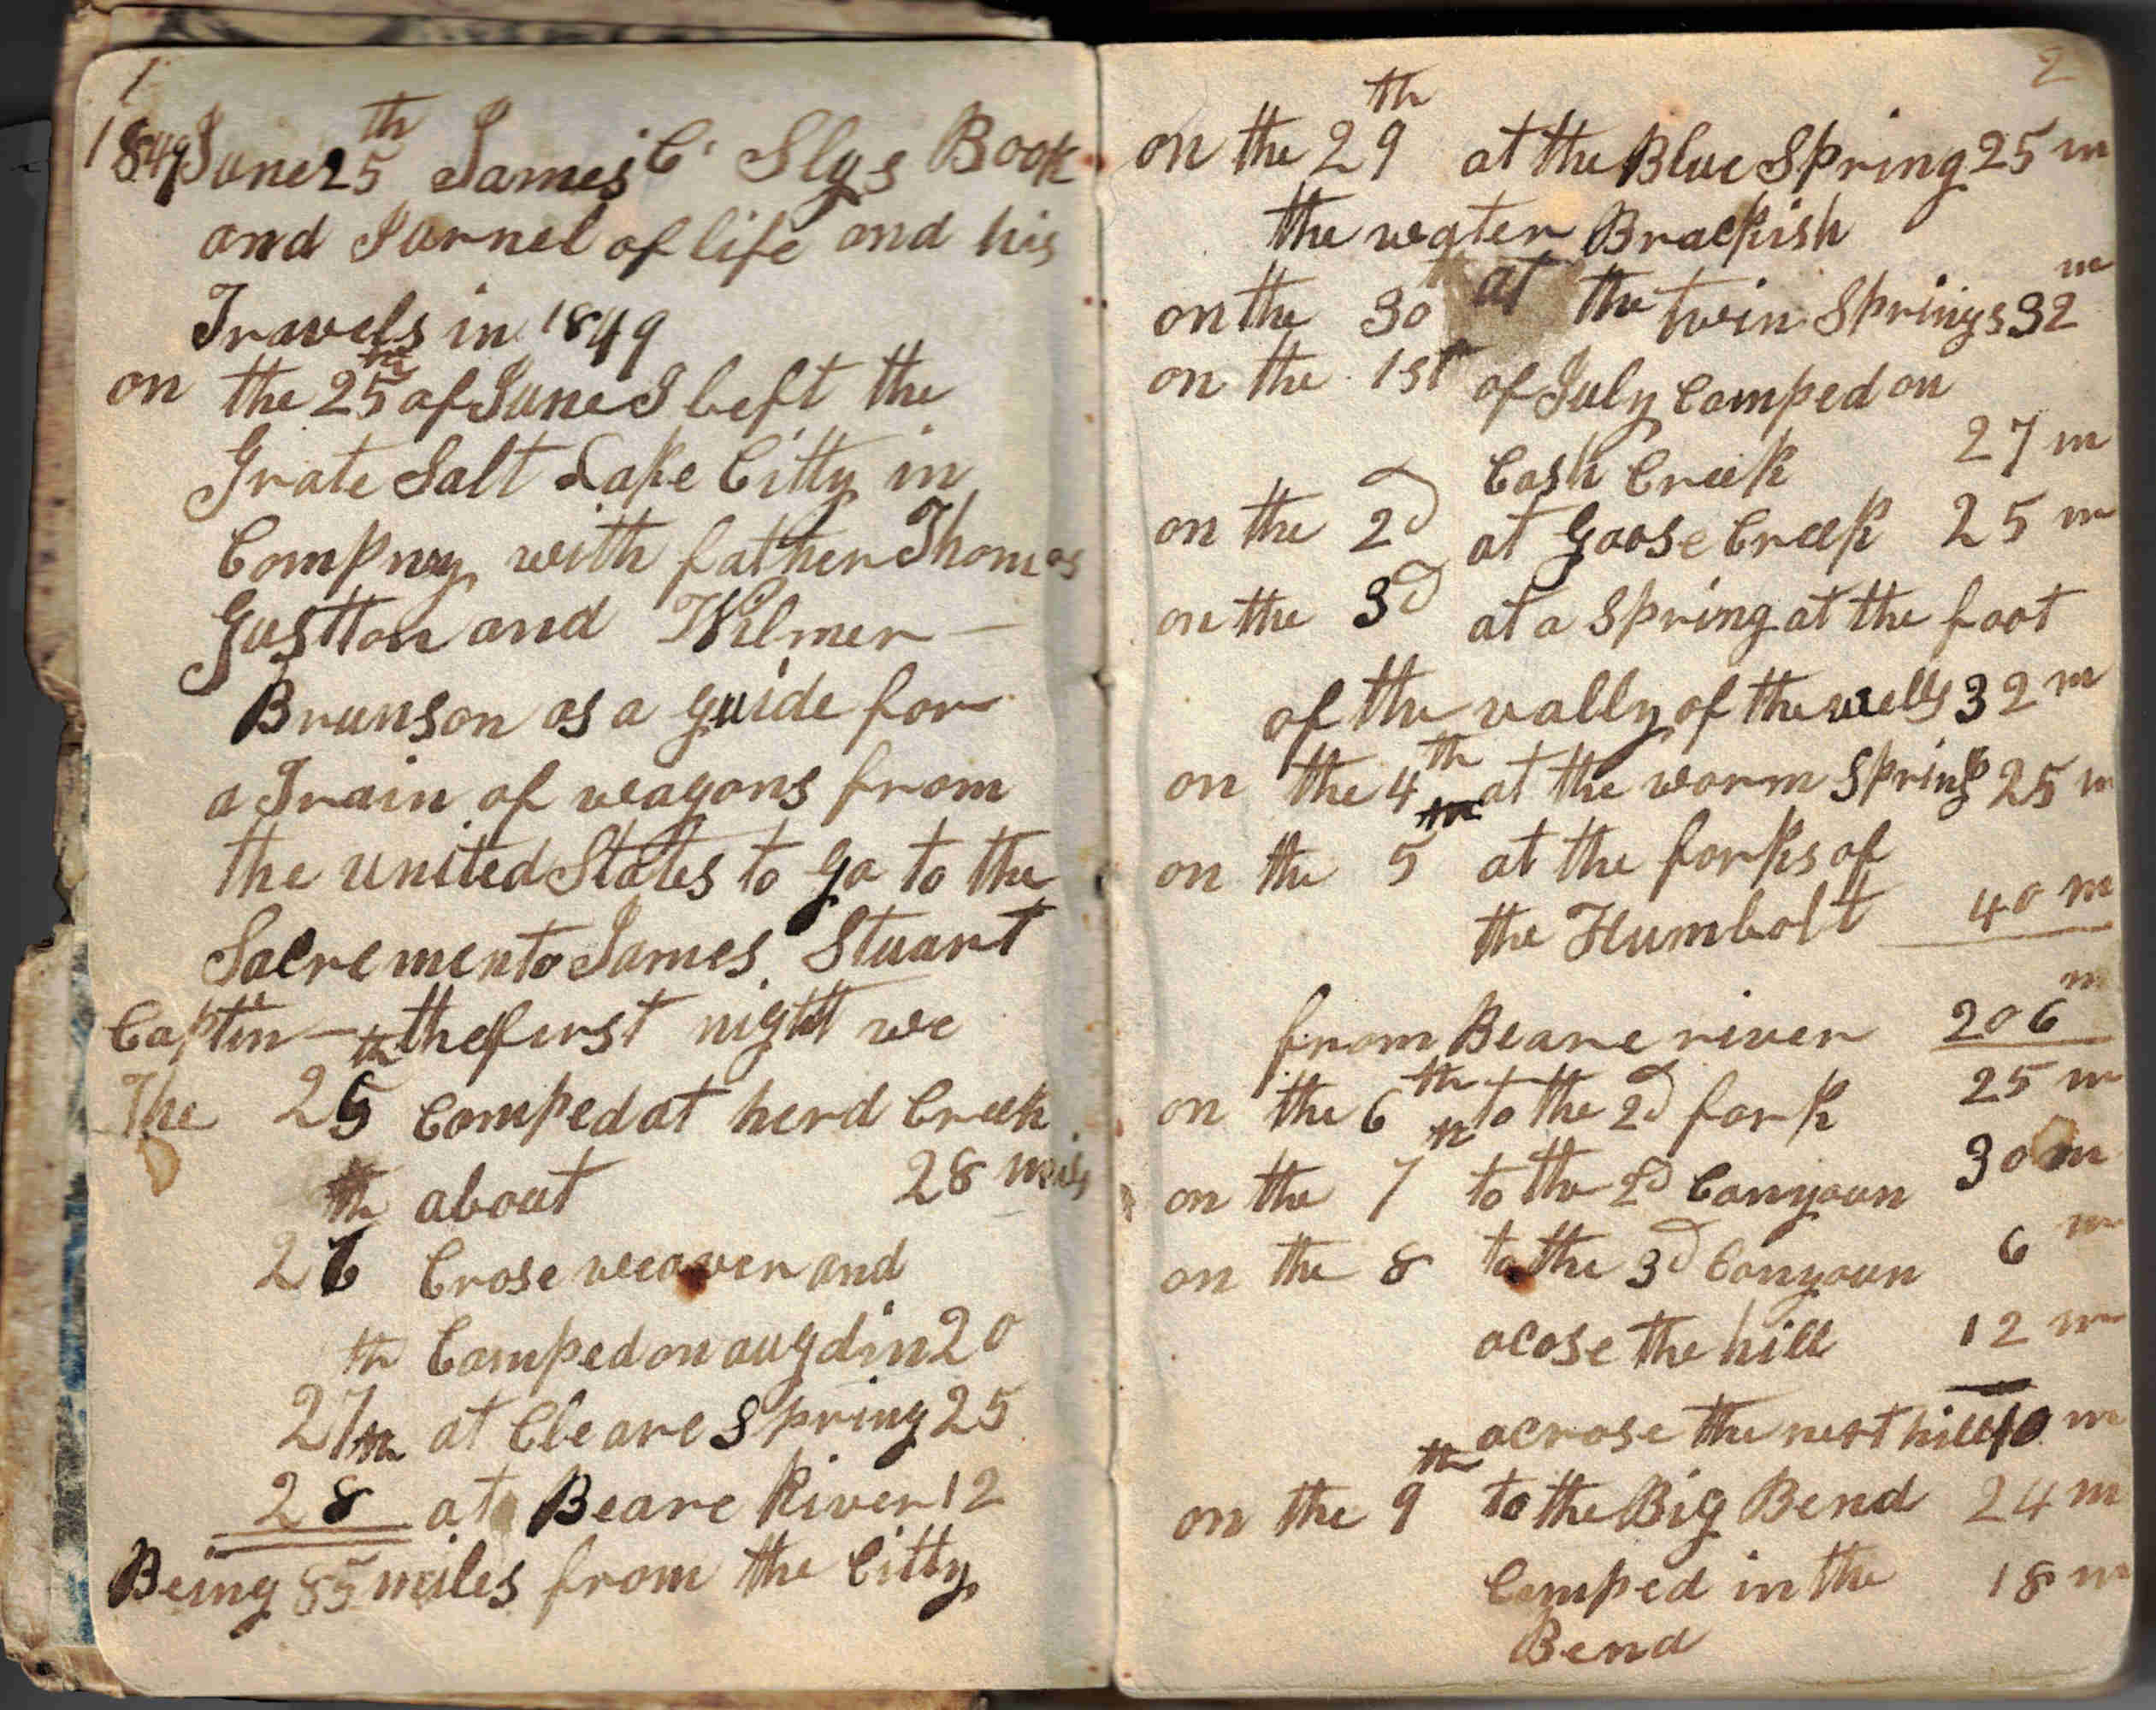 1
1849 June 25th James C. Slys Book
and Jurnel of life and his
Travels in 1849
on the 25th of June I left the
Grate Salt Lake Citty in
Compny with father Thomas
Gustton and Wilmer —
Brunson as a guide for
a Train of wagons from
the united States to go to the
Sacremento James Stuart
Captin — the first night we
The 25th Camped at herd Creek
about 28 meils
26th Crose weaver and
Camped on augdin 20
27th at Cleare Spring 25
28th at Beare River 12
Being 85 miles from the Citty
2
on the 29th at the Blue Spring 25 m
the water Brackish
on the 30 at the twin Springs 32 m
on the 1st of July Camped on
Cash Creek 27 m
on the 2d at Goose Creek 25 m
on the 3d at a Spring at the foot
of the vally of the wells 32 m
on the 4th at the worm Spring 25 m
on the 5th at the forks of
the Humbolt 40 m
from Beare river 206 m
on the 6th to the 2d fork 25 m
on the 7th to the 2d Canyoun 30 m
on the 8 to the 3d Canyoun 6 m
acose the hill 12 m
acrose the next hill 10 m
on the 9th to the Big Bend 24 m
Camped in the 18 m
Bend